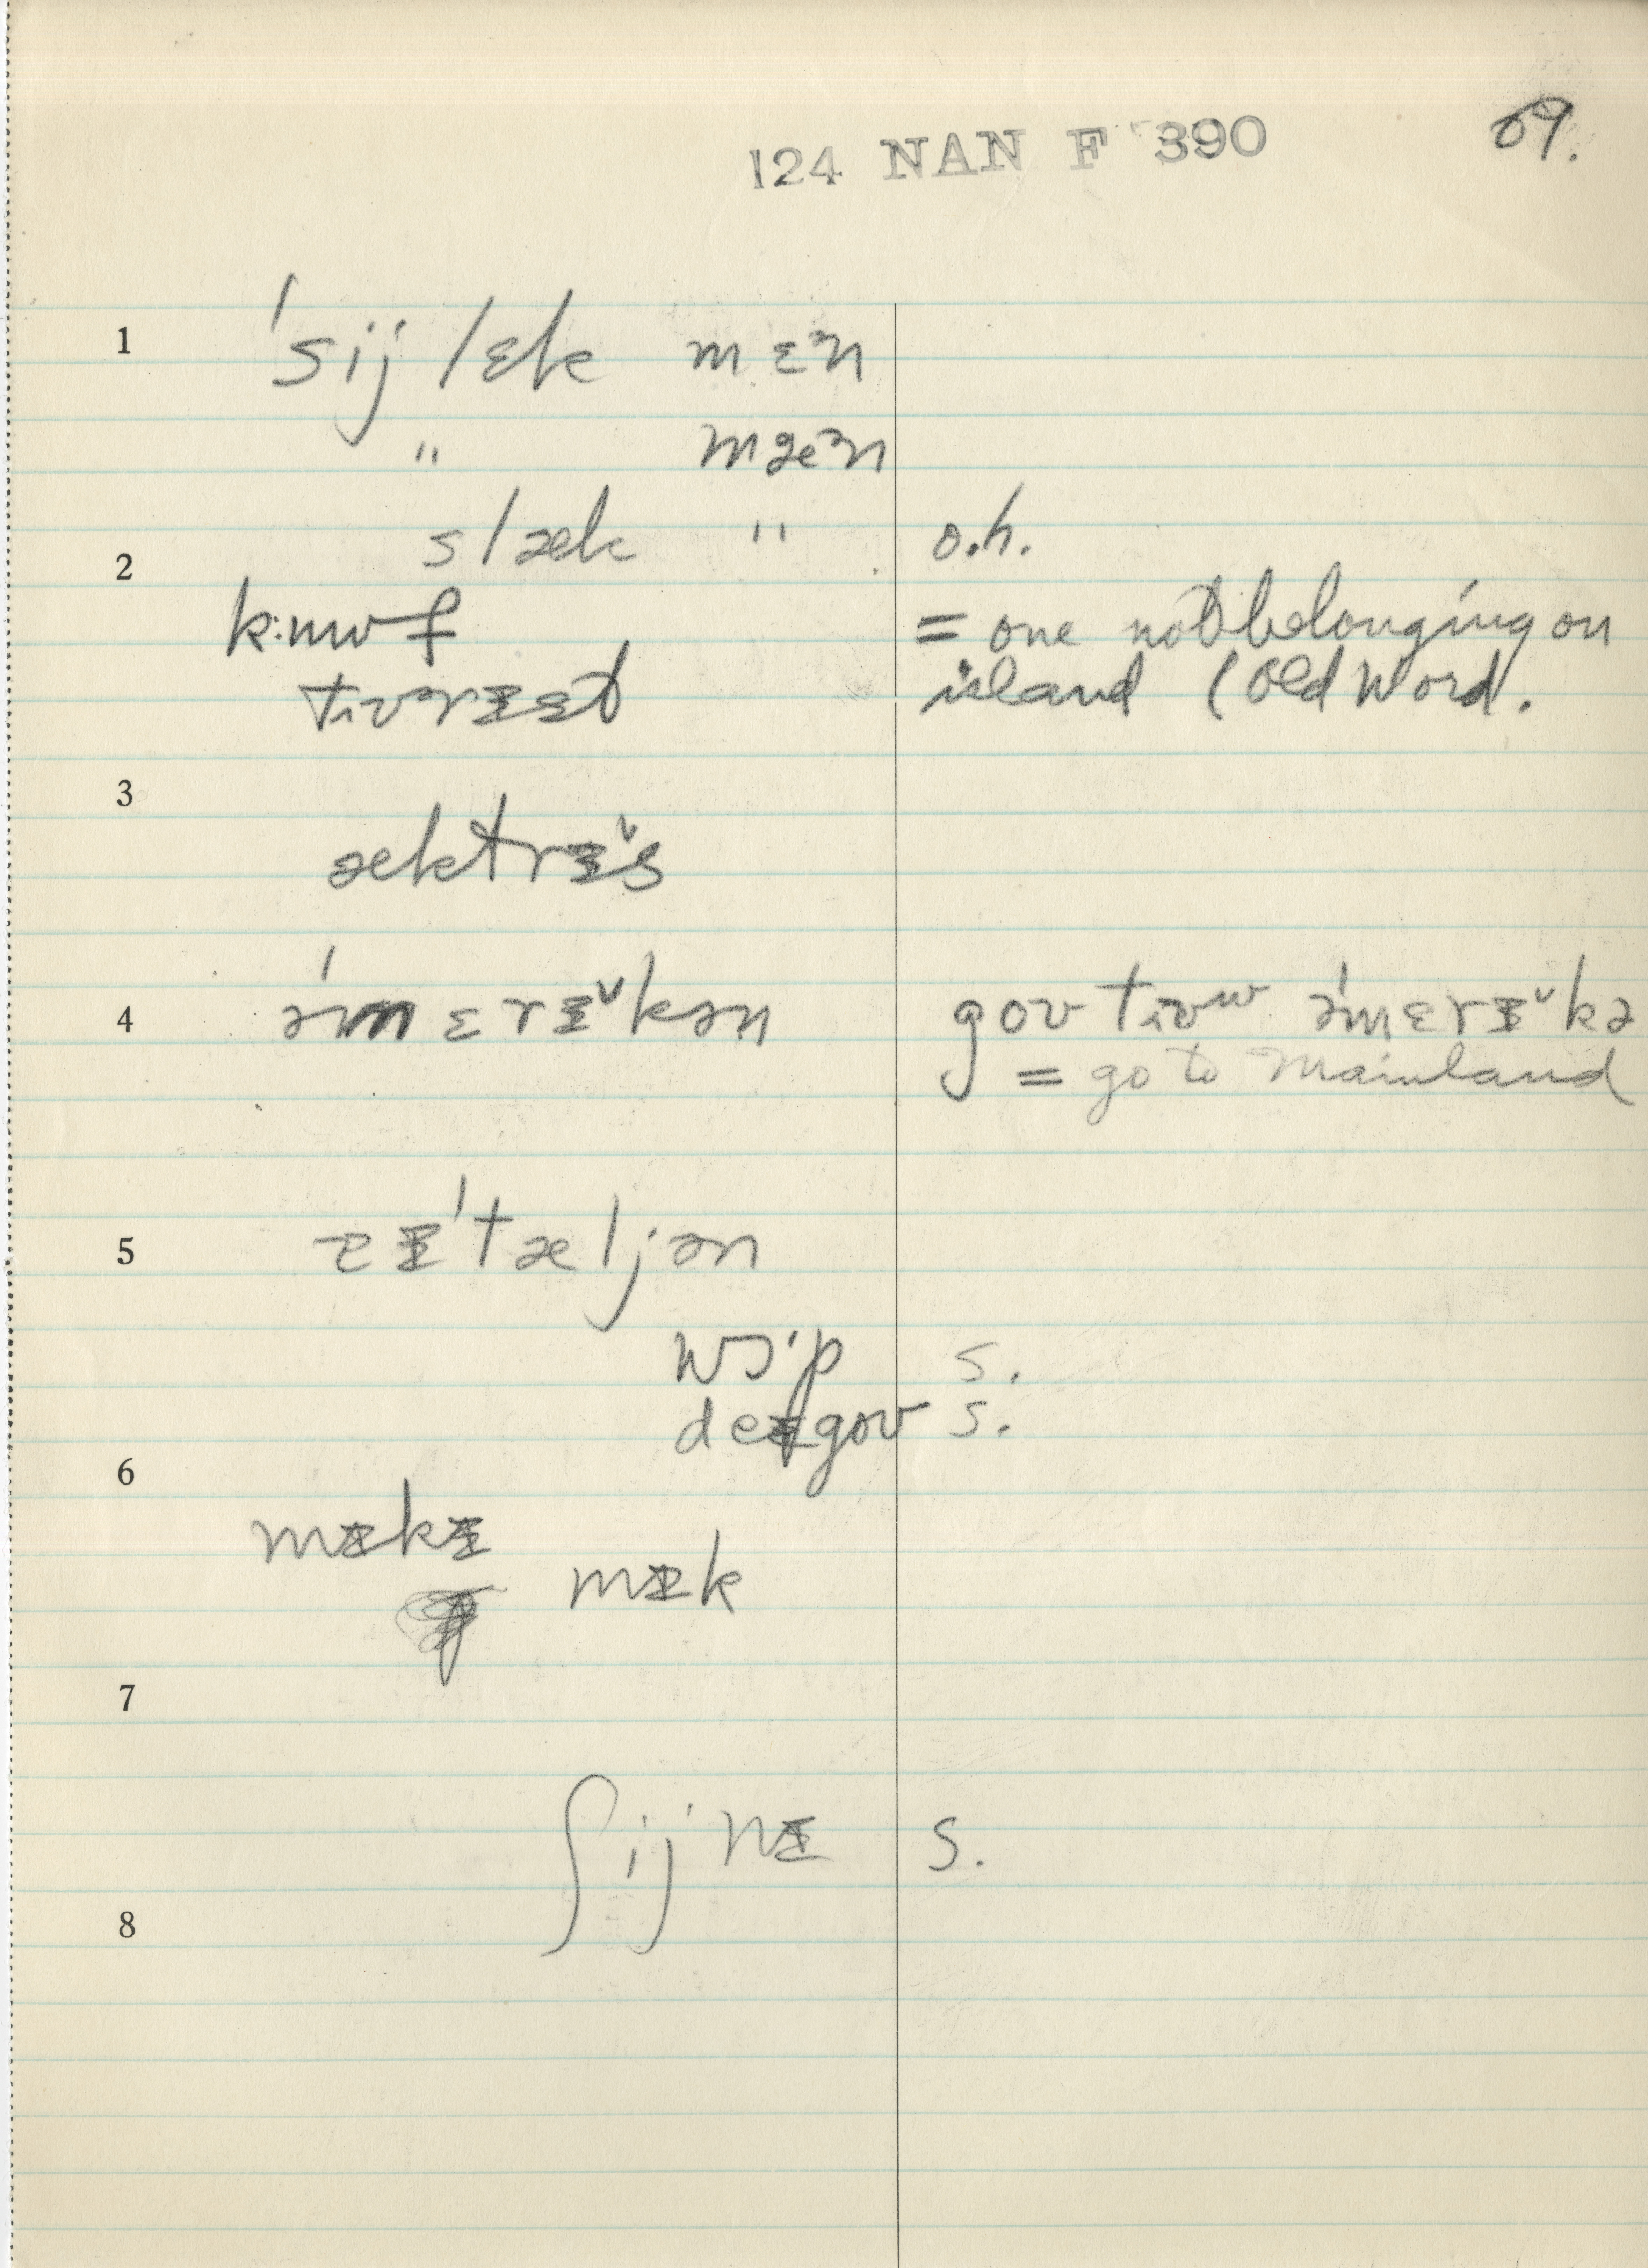 124 NAN F 390 69.
1 ˈsijlɛk mɛᵊn
" mæᵊn
slæk " o.h.
2
= one not belonging on
island (Old Word.
3
æktrɨ̆s
4 əˈmɛrɨ̆kən əˈmɛrɨ̆kə
= go to Mainland
5 ɨˈtæljən
wɔˑp s.
deɨgoʊ s.
6
mɨkɨ
mɨk
7
ʃijnɨ s.
8